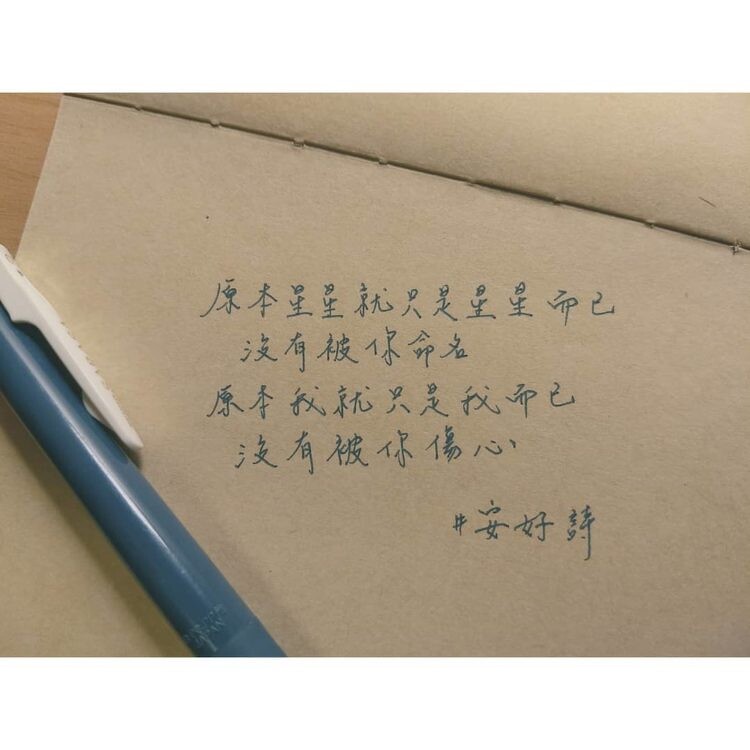 原本星星就只是星星而已
沒有被你命名
原本我就只是我而已
沒有被你傷心
#安好詩
JAPAN